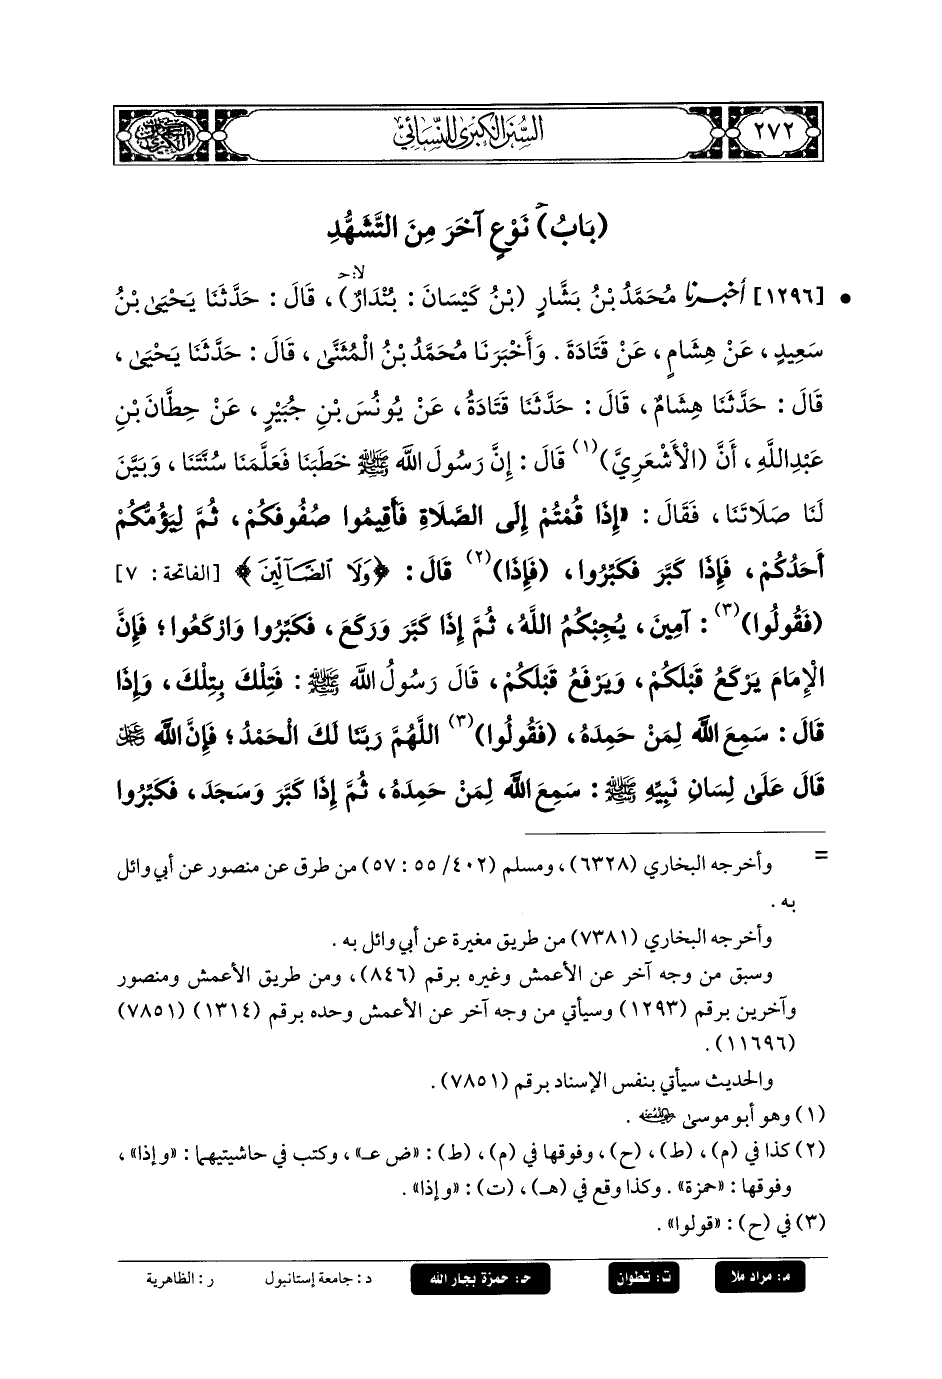 ٢٧٢
السنن الكبرى للنسائي
(بَابُ) نَوْعٍ آخَرَ مِنَ التَّشَهُّدِ
• [١٢٩٦] أخبرنا مُحَمَّدُ بْنُ بَشَّارٍ (بْنُ كَيْسَانَ : بُنْدَارٌ) ، قَالَ : حَدَّثَنَا يَحْيَىٰ بْنُ
سَعِيدٍ ، عَنْ هِشَامٍ ، عَنْ قَتَادَةَ . وَأَخْبَرَنَا مُحَمَّدُ بْنُ الْمُثَنَّىٰ ، قَالَ : حَدَّثَنَا يَحْيَىٰ ،
قَالَ : حَدَّثَنَا هِشَامٌ ، قَالَ : حَدَّثَنَا قَتَادَةُ ، عَنْ يُونُسَ بْنِ جُبَيْرٍ ، عَنْ حِطَّانَ بْنِ
عَبْدِاللَّهِ ، أَنَّ (الْأَشْعَرِيَّ)(١) قَالَ : إِنَّ رَسُولَ اللَّه ﷺ خَطَبَنَا فَعَلَّمَنَا سُنَّتَنَا ، وَبَيَّنَ
لَنَا صَلَاتَنَا ، فَقَالَ : «إِذَا قُمْتُمْ إِلَى الصَّلَاةِ فَأَقِيمُوا صُفُوفَكُمْ ، ثُمَّ لِيَؤُمَّكُمْ
أَحَدُكُمْ ، فَإِذَا كَبَّرَ فَكَبِّرُوا ، (فَإِذَا)(٢) قَالَ : ﴿وَلَا ٱلضَّآلِّينَ﴾ [الفاتحة : ٧]
(فَقُولُوا)(٣) : آمِينَ ، يُجِبْكُمُ اللَّهُ ، ثُمَّ إِذَا كَبَّرَ وَرَكَعَ ، فَكَبِّرُوا وَارْكَعُوا ؛ فَإِنَّ
الْإِمَامَ يَرْكَعُ قَبْلَكُمْ ، وَيَرْفَعُ قَبْلَكُمْ ، قَالَ رَسُولُ اللَّه ﷺ : فَتِلْكَ بِتِلْكَ ، وَإِذَا
قَالَ : سَمِعَ اللَّه لِمَنْ حَمِدَهُ ، (فَقُولُوا)(٣) اللَّهُمَّ رَبَّنَا لَكَ الْحَمْدُ ؛ فَإِنَّ اللَّه ﷿
قَالَ عَلَىٰ لِسَانِ نَبِيِّهِ ﷺ : سَمِعَ اللَّه لِمَنْ حَمِدَهُ ، ثُمَّ إِذَا كَبَّرَ وَسَجَدَ ، فَكَبِّرُوا
= وأخرجه البخاري (٦٣٢٨) ، ومسلم (٤٠٢/ ٥٥ : ٥٧) من طرق عن منصور عن أبي وائل
به .
وأخرجه البخاري (٧٣٨١) من طريق مغيرة عن أبي وائل به .
وسبق من وجه آخر عن الأعمش وغيره برقم (٨٤٦) ، ومن طريق الأعمش ومنصور
وآخرين برقم (١٢٩٣) وسيأتي من وجه آخر عن الأعمش وحده برقم (١٣١٤) (٧٨٥١)
(١١٦٩٦) .
والحديث سيأتي بنفس الإسناد برقم (٧٨٥١) .
(١) وهو أبو موسىٰ رضي الله عنه .
(٢) كذا في (م) ، (ط) ، (ح) ، وفوقها في (م) ، (ط) : «ض عـ» ، وكتب في حاشيتيهما : «وإذا» ،
وفوقها : «حمزة» . وكذا وقع في (هـ) ، (ت) : «وإذا» .
(٣) في (ح) : «قولوا» .
م: مراد ملا ت: تطوان حـ: حمزة بجار الله د: جامعة إستانبول ر: الظاهرية